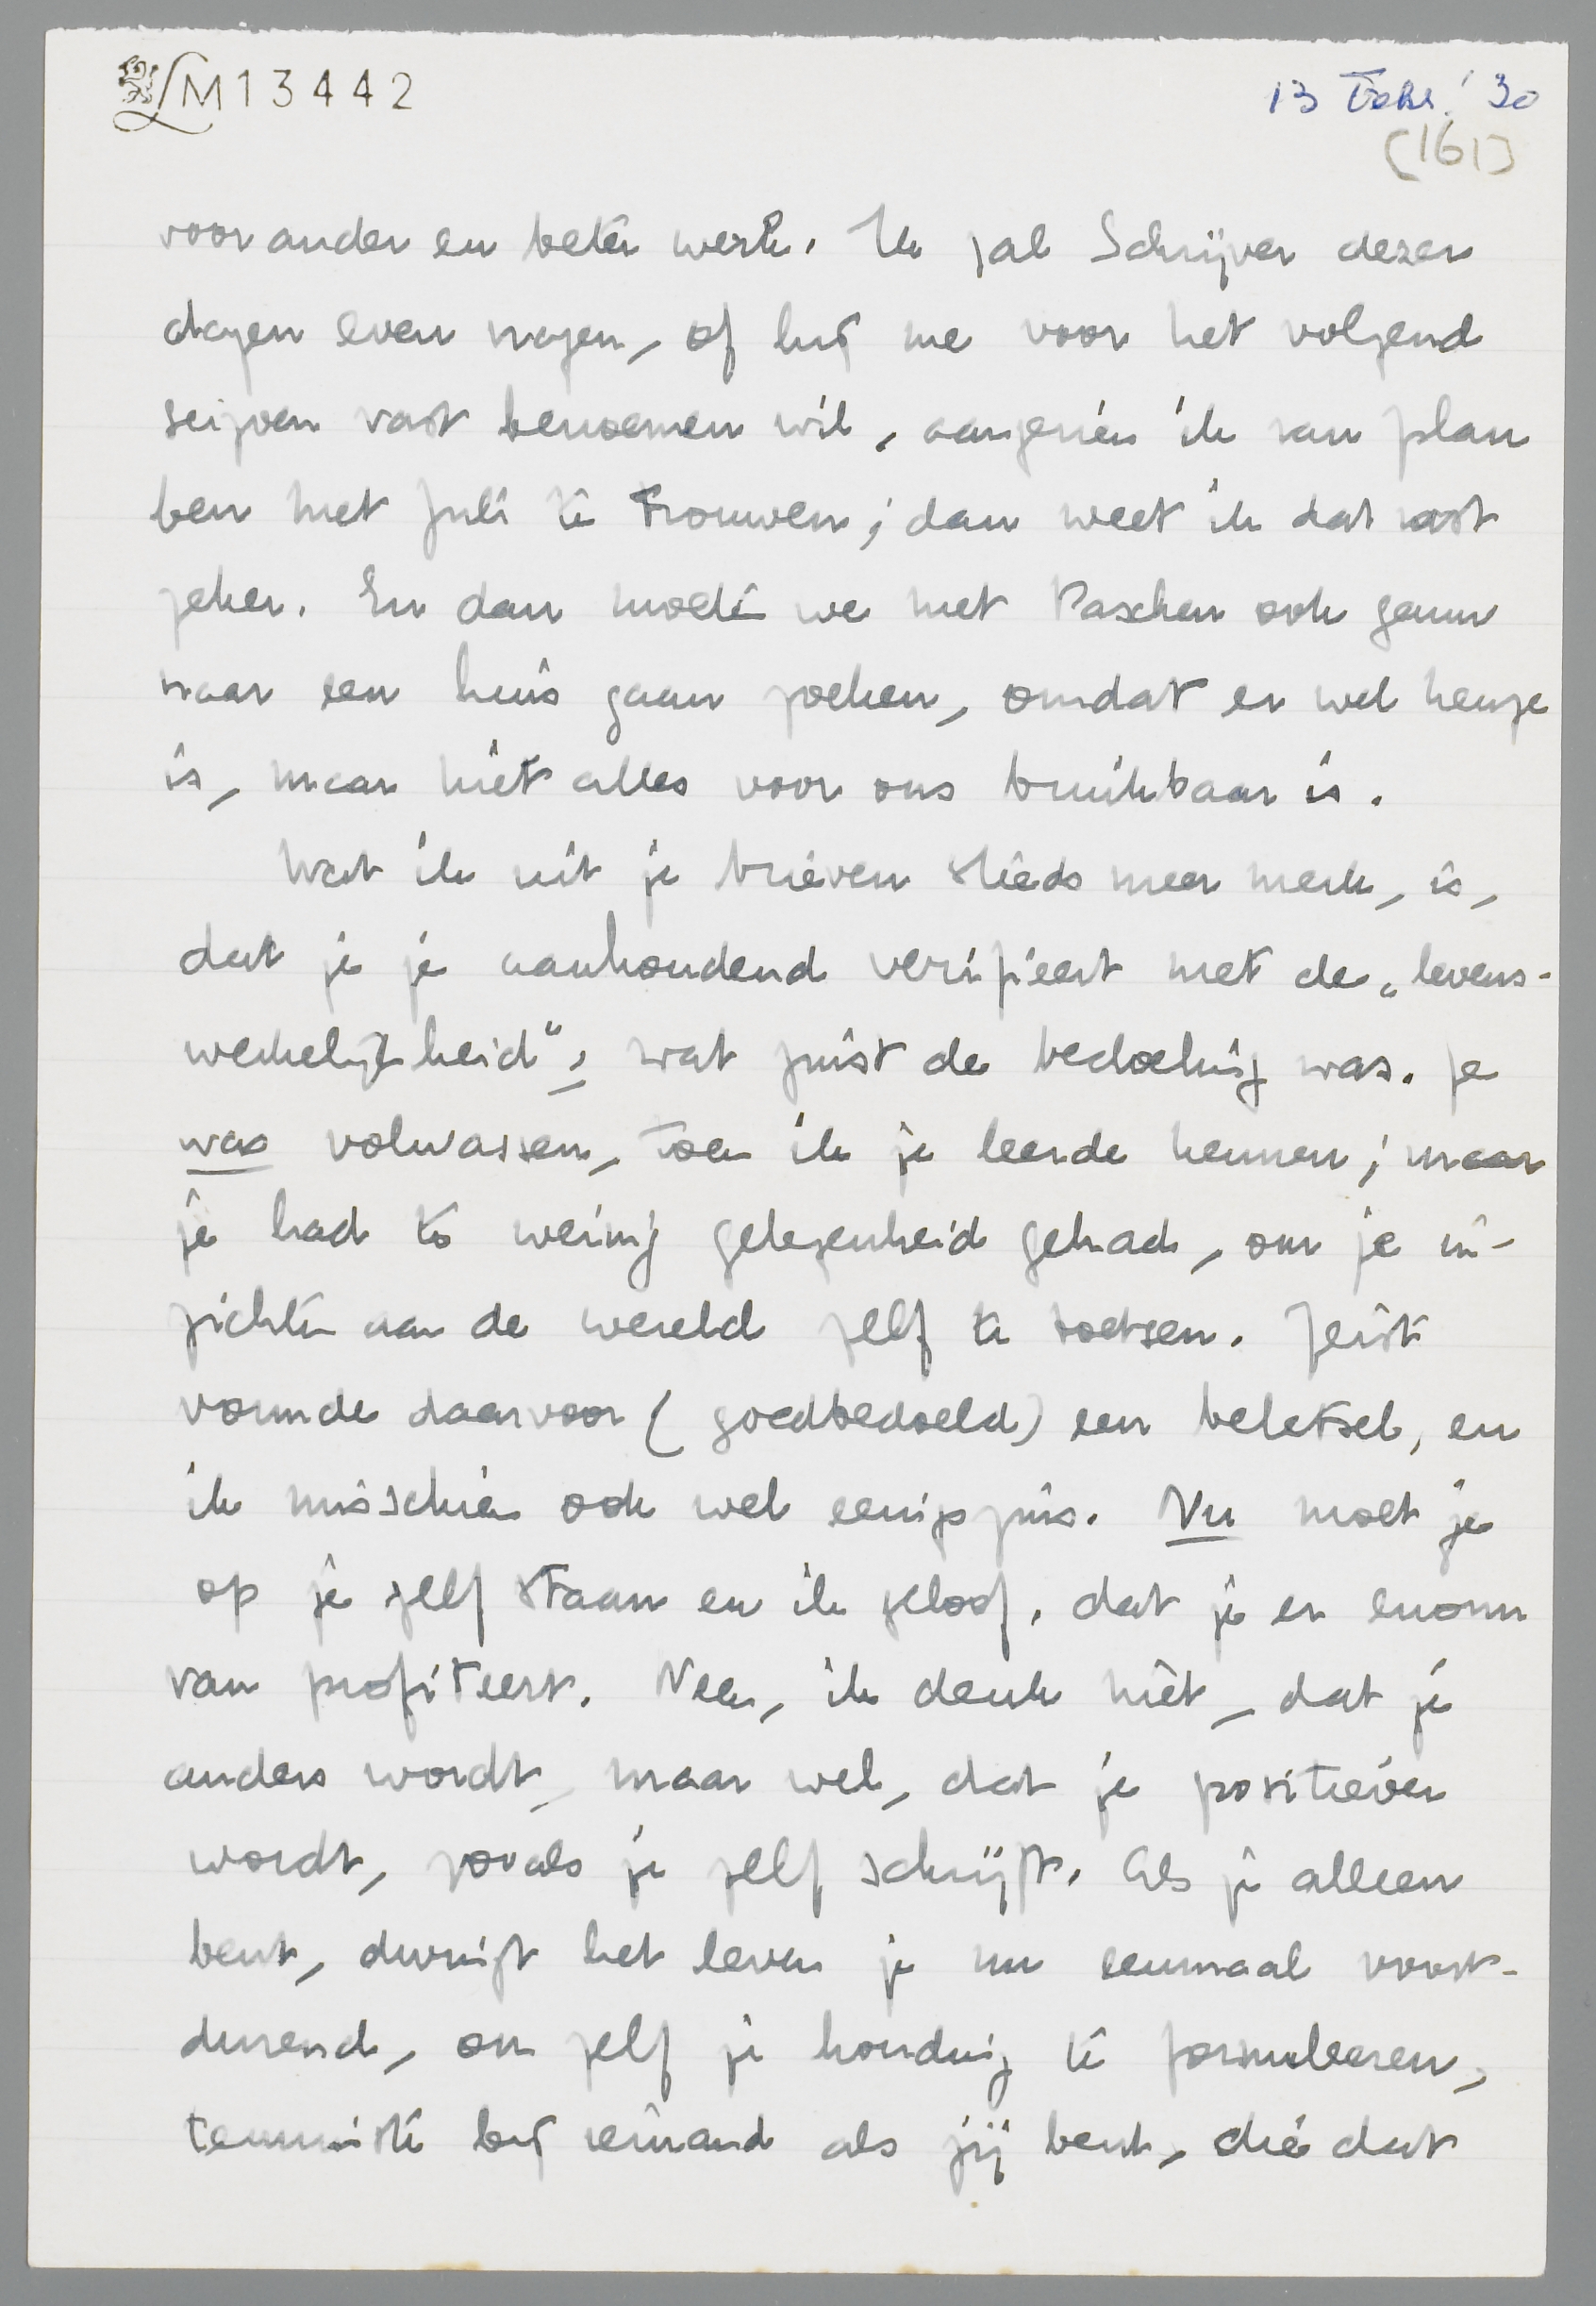 LM13442
13 Febr. '30
(161)
voor ander en beter werk. Ik zal Schrijver dezer
dagen even vragen, of hij me voor het volgend
seizoen vast benoemen wil, aangezien ik van plan
ben met Juli te trouwen; dan weet ik dat vast
zeker. En dan moeten we met Paschen ook gauw
naar een huis gaan zoeken, omdat er wel keuze
is, maar niet alles voor ons bruikbaar is.
Wat ik uit je brieven steeds meer merk, is,
dat je je aanhoudend verifieert met de „levens-
werkelijkheid"; wat juist de bedoeling was. Je
was volwassen, toen ik je leerde kennen; maar
je had te weinig gelegenheid gehad, om je in-
zichten aan de wereld zelf te toetsen. Zeist
vormde daarvoor (goedbedoeld) een beletsel, en
ik misschien ook wel eenigszins. Nu moet je
op je zelf staan en ik geloof, dat je er enorm
van profiteert. Neen, ik denk niet, dat je
anders wordt, maar wel, dat je positiever
wordt, zooals je zelf schrijft. Als je alleen
bent, dwingt het leven je nu eenmaal voort-
durend, om zelf je houding te formuleeren,
tenminste bij iemand als jij bent, die dat